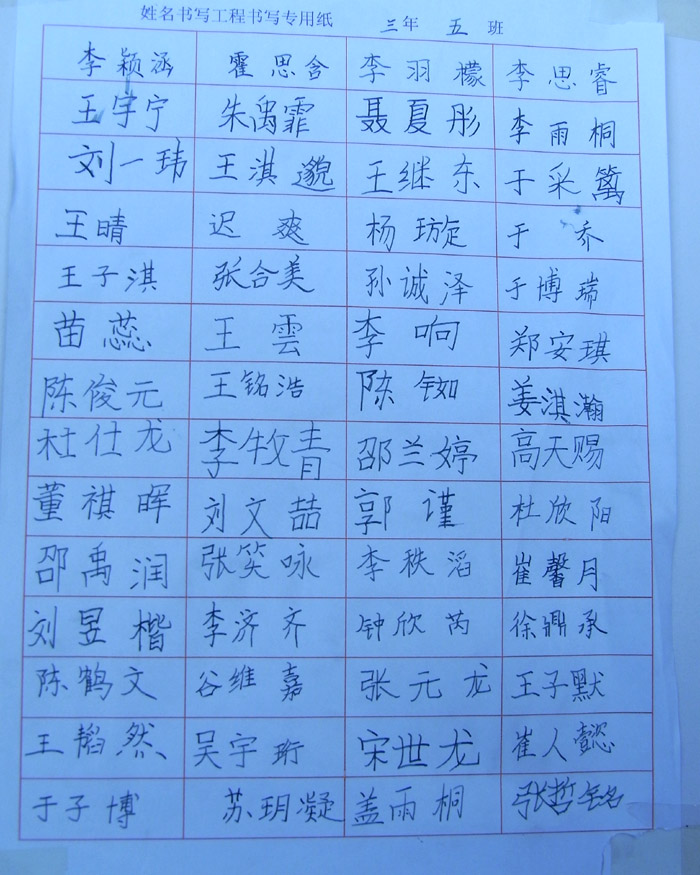 姓名书写工程书写专用纸 三年 五 班
李颖涵 霍思含 李羽檬 李思睿
王宇宁 朱禹霏 聂夏彤 李雨桐
刘一玮 王淇邈 王继东 于采篱
王晴 迟爽 杨玏旋 于乔
王子淇 张合美 孙诚泽 于博瑞
苗蕊 王雲 李响 郑安琪
陈俊元 王铭浩 陈铷 姜淇瀚
杜仕龙 李牧青 邵兰婷 高天赐
董祺晖 刘文喆 郭谨 杜欣阳
邵禹润 张笑咏 李秩滔 崔馨月
刘昱楷 李济齐 钟欣芮 徐鼎承
陈鹤文 谷维嘉 张元龙 王子默
王韬然 吴宇珩 宋世龙 崔人懿
于子博 苏玥凝 盖雨桐 张哲铭